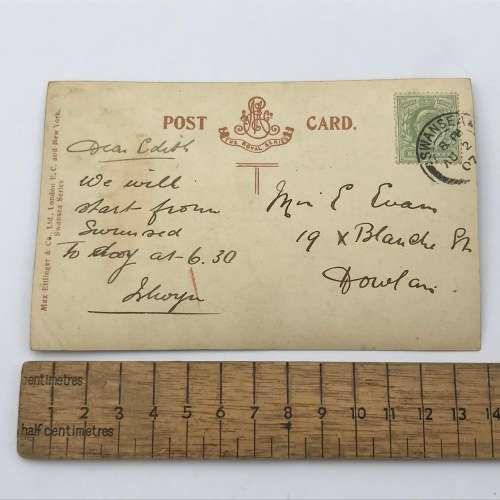 POST CARD.
THE ROYAL SERIES
Max Ettlinger & Co., Ltd., London E.C. and New York.
Swansea Series
Dear Edith
We will
start from
Swansea
To day at 6.30
Islwyn
Miss E Evans
19 x Blanche St
Dowlais
SWANSEA
AU 2
07
centimetres
1 2 3 4 5 6 7 8 9 10 11 12 13 14
half centimetres